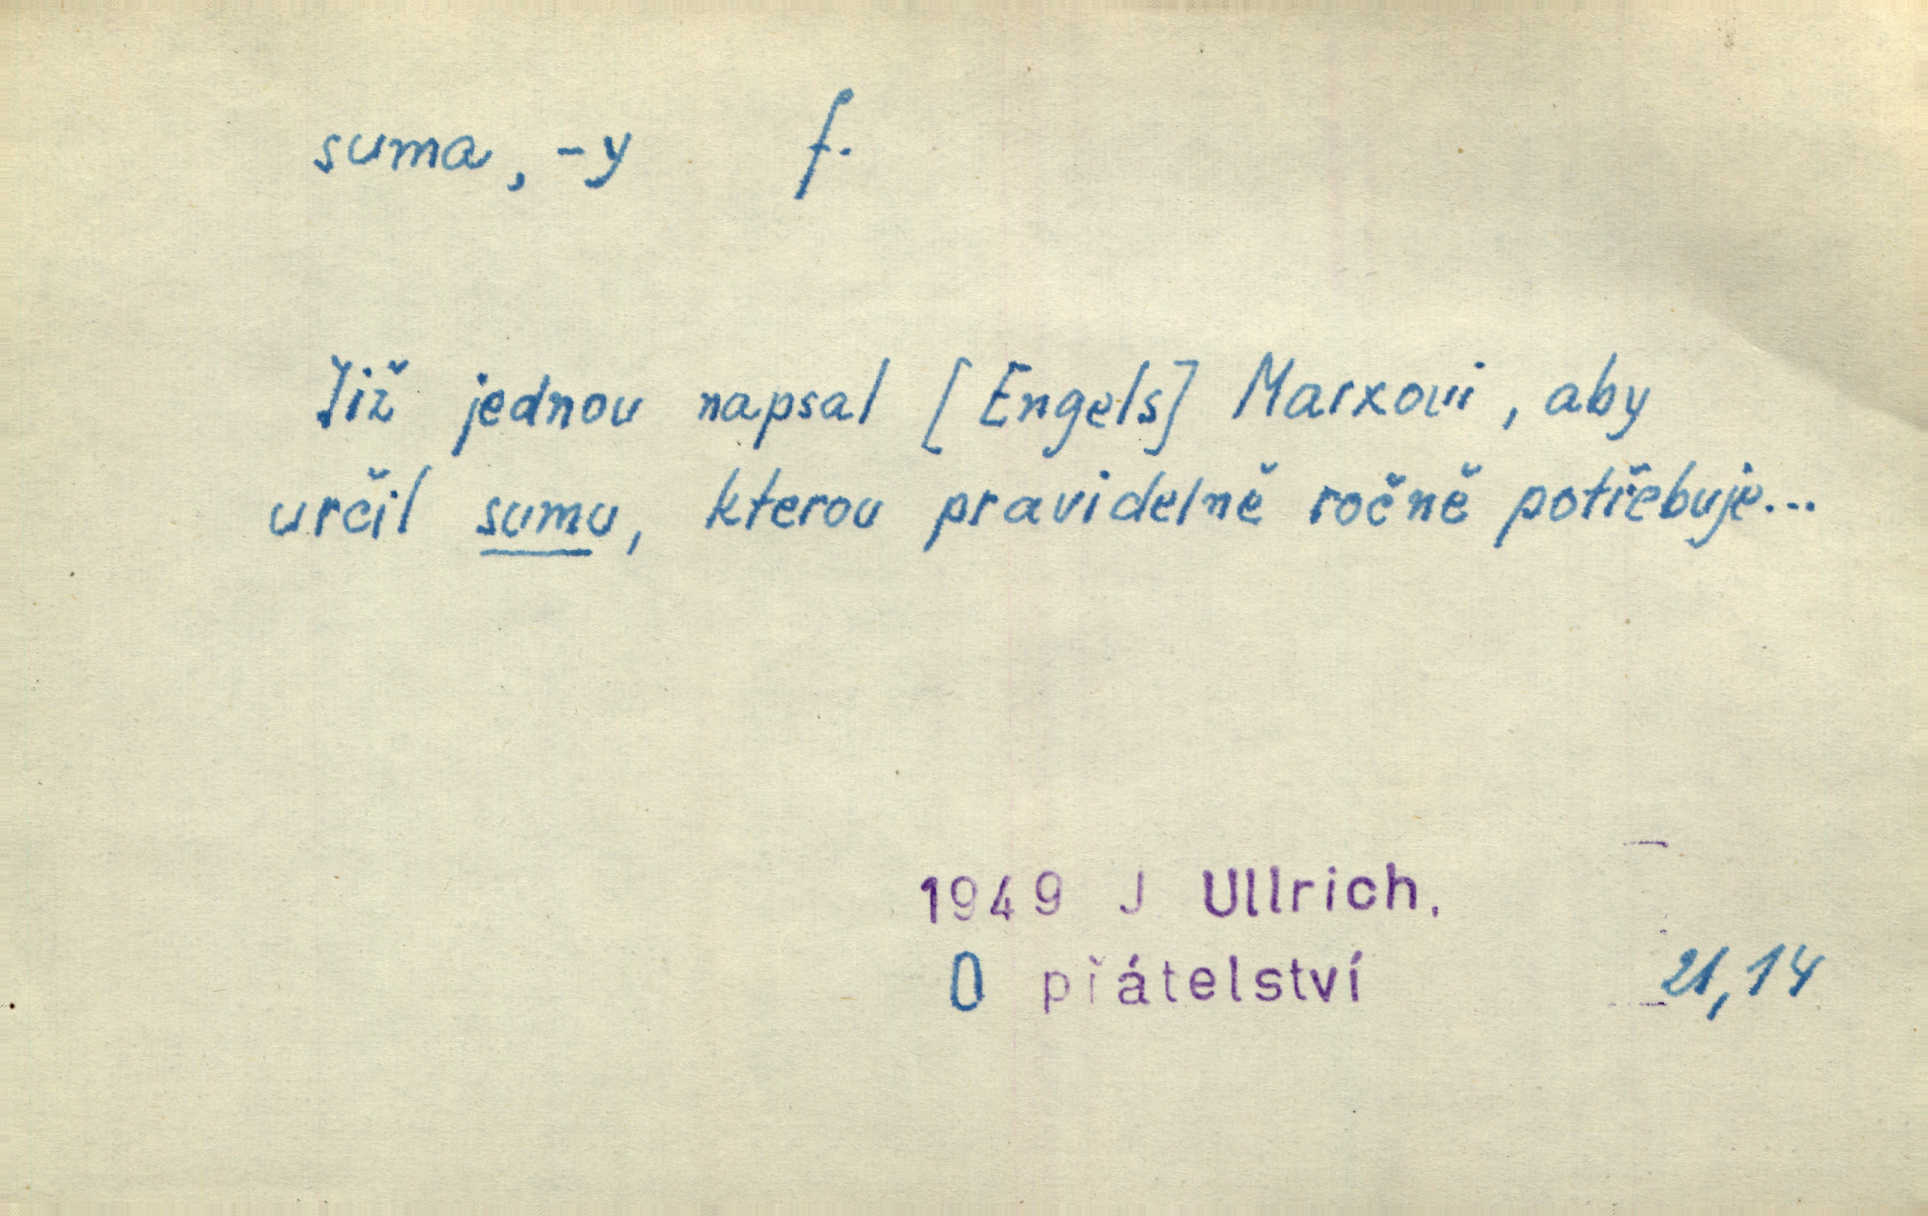 suma, -y f.
Již jednou napsal [Engels] Marxovi, aby
určil sumu, kterou pravidelně ročně potřebuje...
1949 J Ullrich.
O přátelství 21,14